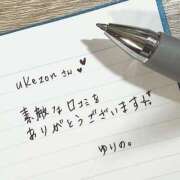 ukezonさん♥♥
素敵な口コミを
ありがとうございます
ゆりの。